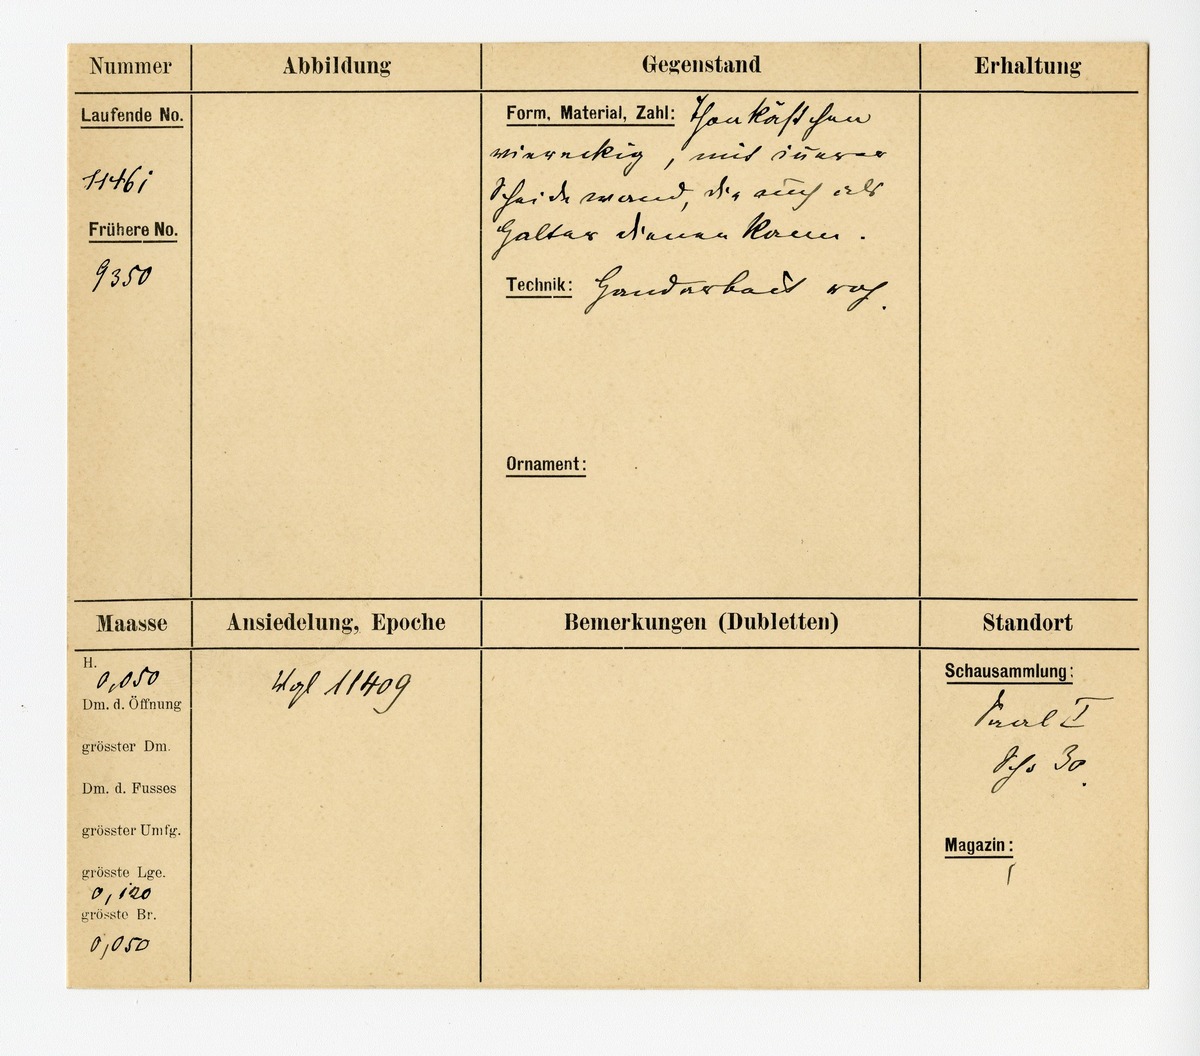 Nummer
Abbildung
Gegenstand
Erhaltung
Laufende No.
11461
Frühere No.
9350
Form, Material, Zahl: Thonkästchen
viereckig, mit innerer
Scheidewand, die auch als
Halter dienen kann.
Technik: Handarbeit roh.
Ornament:
Maasse
Ansiedelung, Epoche
Bemerkungen (Dubletten)
Standort
H.
0,050
Dm. d. Öffnung
grösster Dm.
Dm. d. Fusses
grösster Umfg.
grösste Lge.
0,120
grösste Br.
0,050
Vgl 11409
Schausammlung:
Saal I
Schr 30.
Magazin: